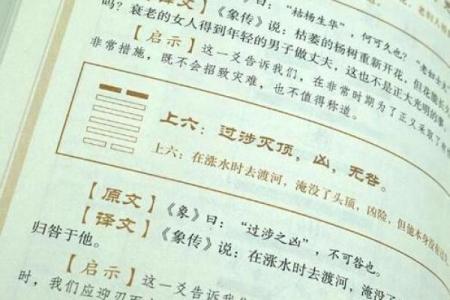 【译文】《象传》说:枯萎的杨树重新开花,但花能长久
吗?衰老的女人得到年轻的男子做丈夫,这也不是正大光明的事
【启示】这一爻告诉我们,在非常时期为了正义采取了
非常措施,既不会招致灾难,也不值得称道。
上六:过涉灭顶,凶,无咎。
上六:在涨水时去渡河,淹没了头顶,凶险,但他本身没有
【原文】《象》曰:“过涉之凶”,不可咎也。
【译文】《象传》说:在涨水时去渡河,淹没
归咎于他。
【启示】这一爻告诉我
时,我们应迎刃而